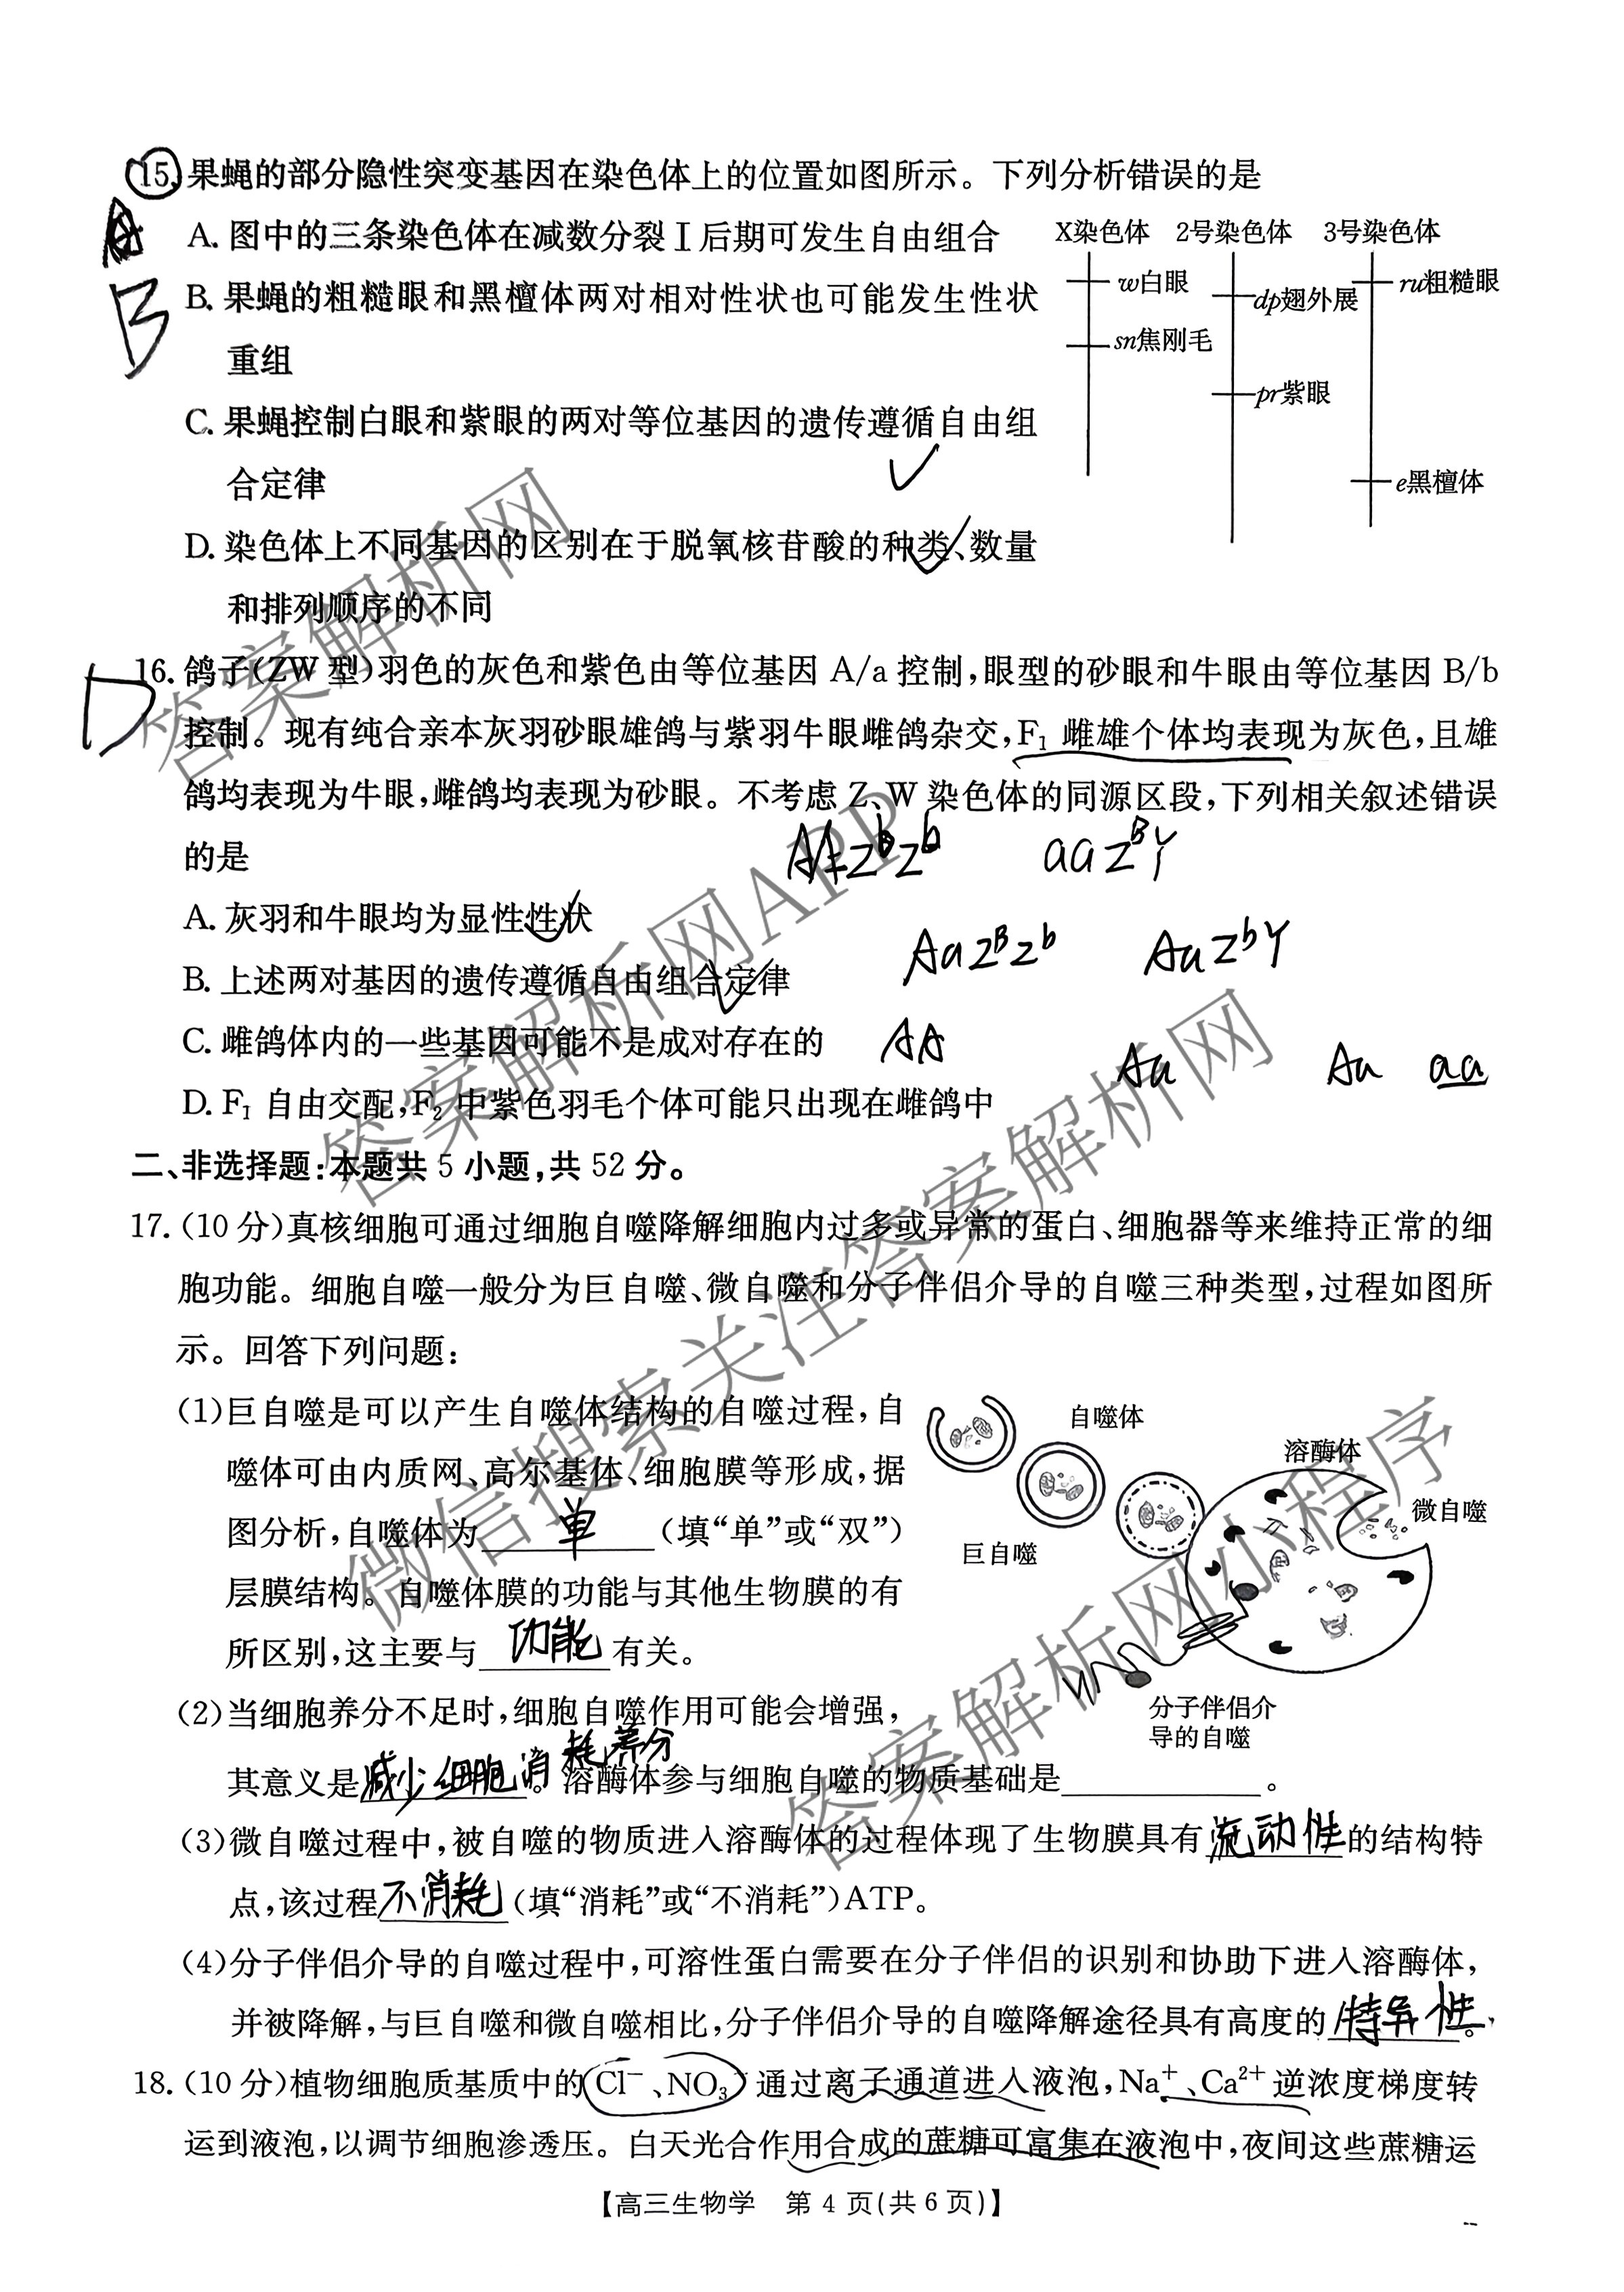 15. 果蝇的部分隐性突变基因在染色体上的位置如图所示。下列分析错误的是
A. 图中的三条染色体在减数分裂Ⅰ后期可发生自由组合
B. 果蝇的粗糙眼和黑檀体两对相对性状也可能发生性状
重组
C. 果蝇控制白眼和紫眼的两对等位基因的遗传遵循自由组
合定律
D. 染色体上不同基因的区别在于脱氧核苷酸的种类、数量
和排列顺序的不同
B
X染色体 2号染色体 3号染色体
w白眼
dp翅外展
ru粗糙眼
sn焦刚毛
pr紫眼
e黑檀体
D
16. 鸽子(ZW 型)羽色的灰色和紫色由等位基因 A/a 控制,眼型的砂眼和牛眼由等位基因 B/b
控制。现有纯合亲本灰羽砂眼雄鸽与紫羽牛眼雌鸽杂交,F₁ 雌雄个体均表现为灰色,且雄
鸽均表现为牛眼,雌鸽均表现为砂眼。不考虑 Z、W 染色体的同源区段,下列相关叙述错误
的是
AAZᵇZᵇ aaZᴮY
A. 灰羽和牛眼均为显性性状
AaZᴮZᵇ AaZᵇY
B. 上述两对基因的遗传遵循自由组合定律
C. 雌鸽体内的一些基因可能不是成对存在的
AA Aa Aa aa
D. F₁ 自由交配,F₂ 中紫色羽毛个体可能只出现在雌鸽中
二、非选择题:本题共 5 小题,共 52 分。
17. (10 分)真核细胞可通过细胞自噬降解细胞内过多或异常的蛋白、细胞器等来维持正常的细
胞功能。细胞自噬一般分为巨自噬、微自噬和分子伴侣介导的自噬三种类型,过程如图所
示。回答下列问题:
(1)巨自噬是可以产生自噬体结构的自噬过程,自
噬体可由内质网、高尔基体、细胞膜等形成,据
图分析,自噬体为 单 (填“单”或“双”)
层膜结构。自噬体膜的功能与其他生物膜的有
所区别,这主要与 功能 有关。
自噬体
溶酶体
微自噬
巨自噬
分子伴侣介
导的自噬
(2)当细胞养分不足时,细胞自噬作用可能会增强,
其意义是 减少细胞消耗养分 。溶酶体参与细胞自噬的物质基础是____________。
(3)微自噬过程中,被自噬的物质进入溶酶体的过程体现了生物膜具有 流动性 的结构特
点,该过程 不消耗 (填“消耗”或“不消耗”)ATP。
(4)分子伴侣介导的自噬过程中,可溶性蛋白需要在分子伴侣的识别和协助下进入溶酶体,
并被降解,与巨自噬和微自噬相比,分子伴侣介导的自噬降解途径具有高度的 特异性 。
18. (10 分)植物细胞质基质中的 Cl⁻、NO₃⁻ 通过离子通道进入液泡,Na⁺、Ca²⁺ 逆浓度梯度转
运到液泡,以调节细胞渗透压。白天光合作用合成的蔗糖可富集在液泡中,夜间这些蔗糖运
【高三生物学 第 4 页(共 6 页)】
答案解析网
答案解析网APP
微信搜索关注答案解析网
答案解析网小程序